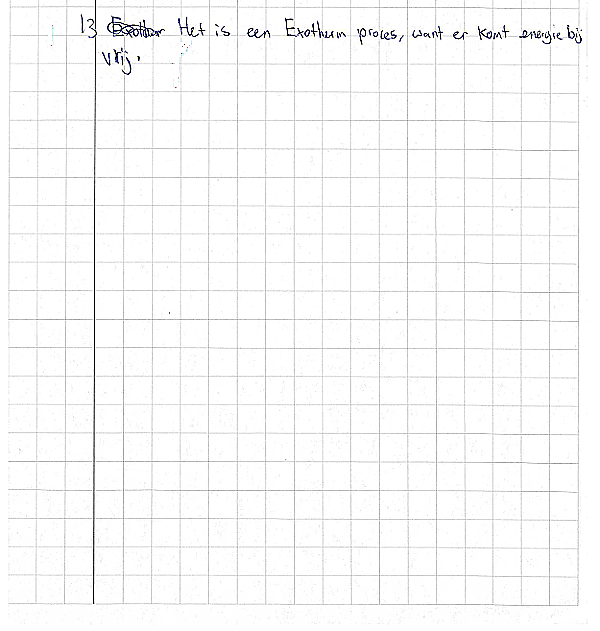 13 Het is een Exotherm proces, want er komt energie bij
vrij.